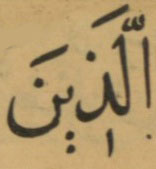 الَّذِينَ